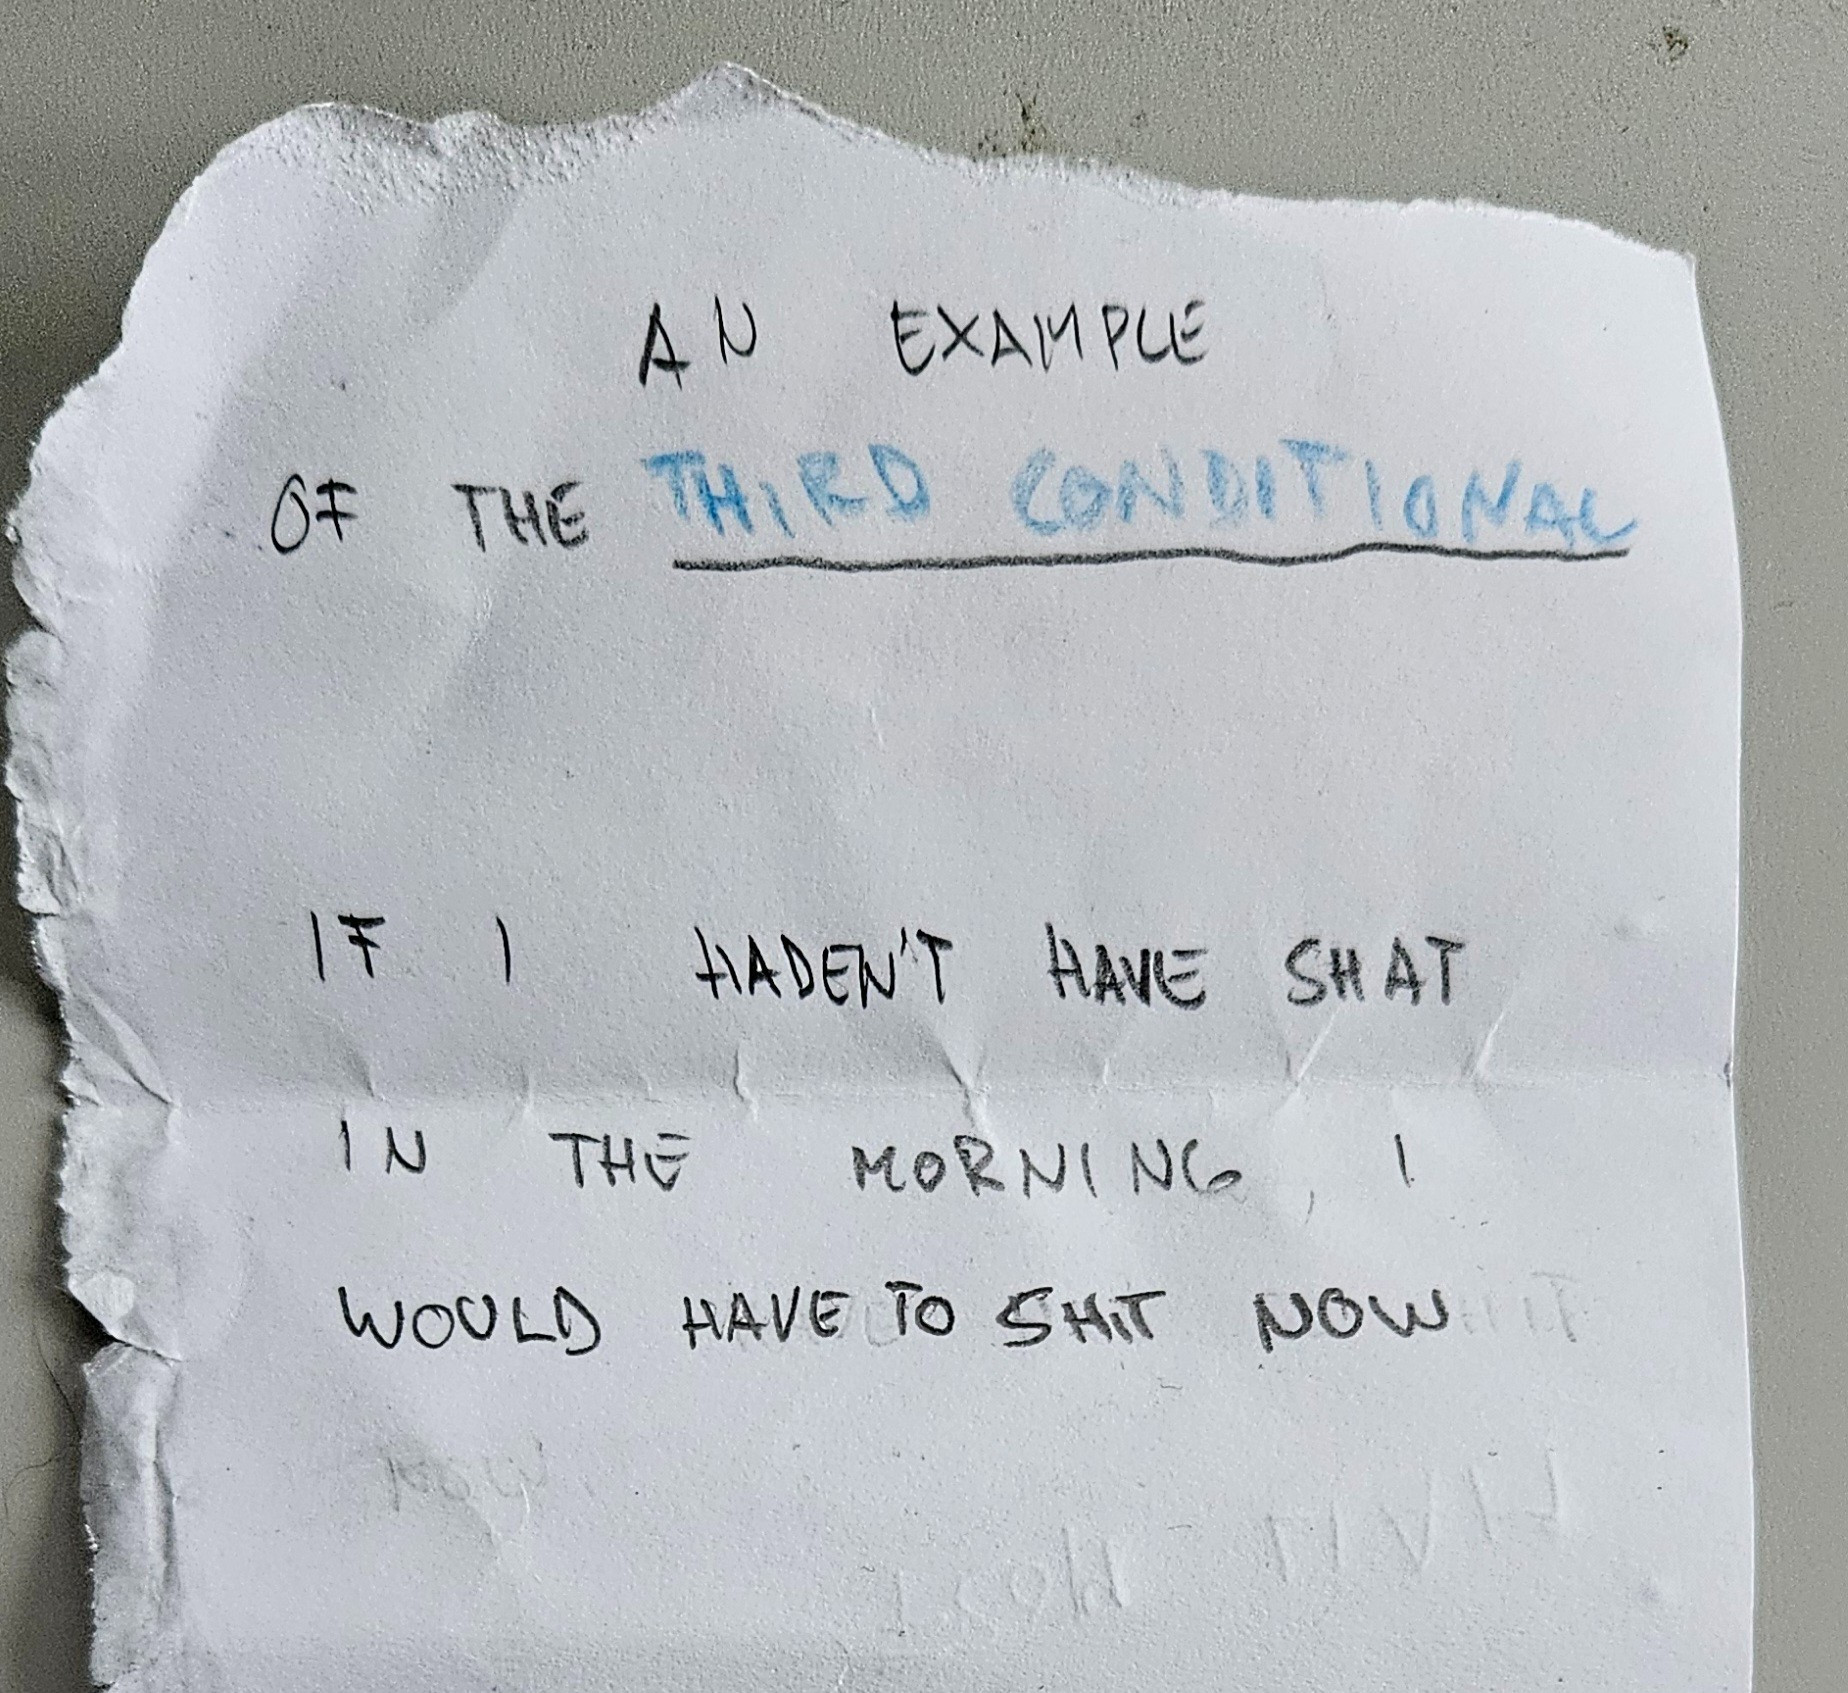 AN EXAMPLE
OF THE THIRD CONDITIONAL
IF I HADEN'T HAVE SHAT
IN THE MORNING, I
WOULD HAVE TO SHIT NOW
NOW